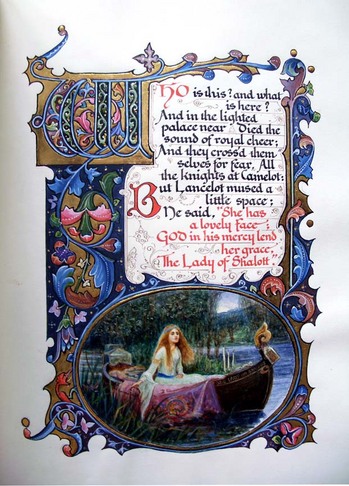 WHO is this? and what
is here?
And in the lighted
palace near Died the
sound of royal cheer;
And they crossed them
selves for fear, All
the knights at Camelot:
But Lancelot mused a
little space;
He said, "She has
a lovely face
GOD in his mercy lend
her grace,
The Lady of Shalott"